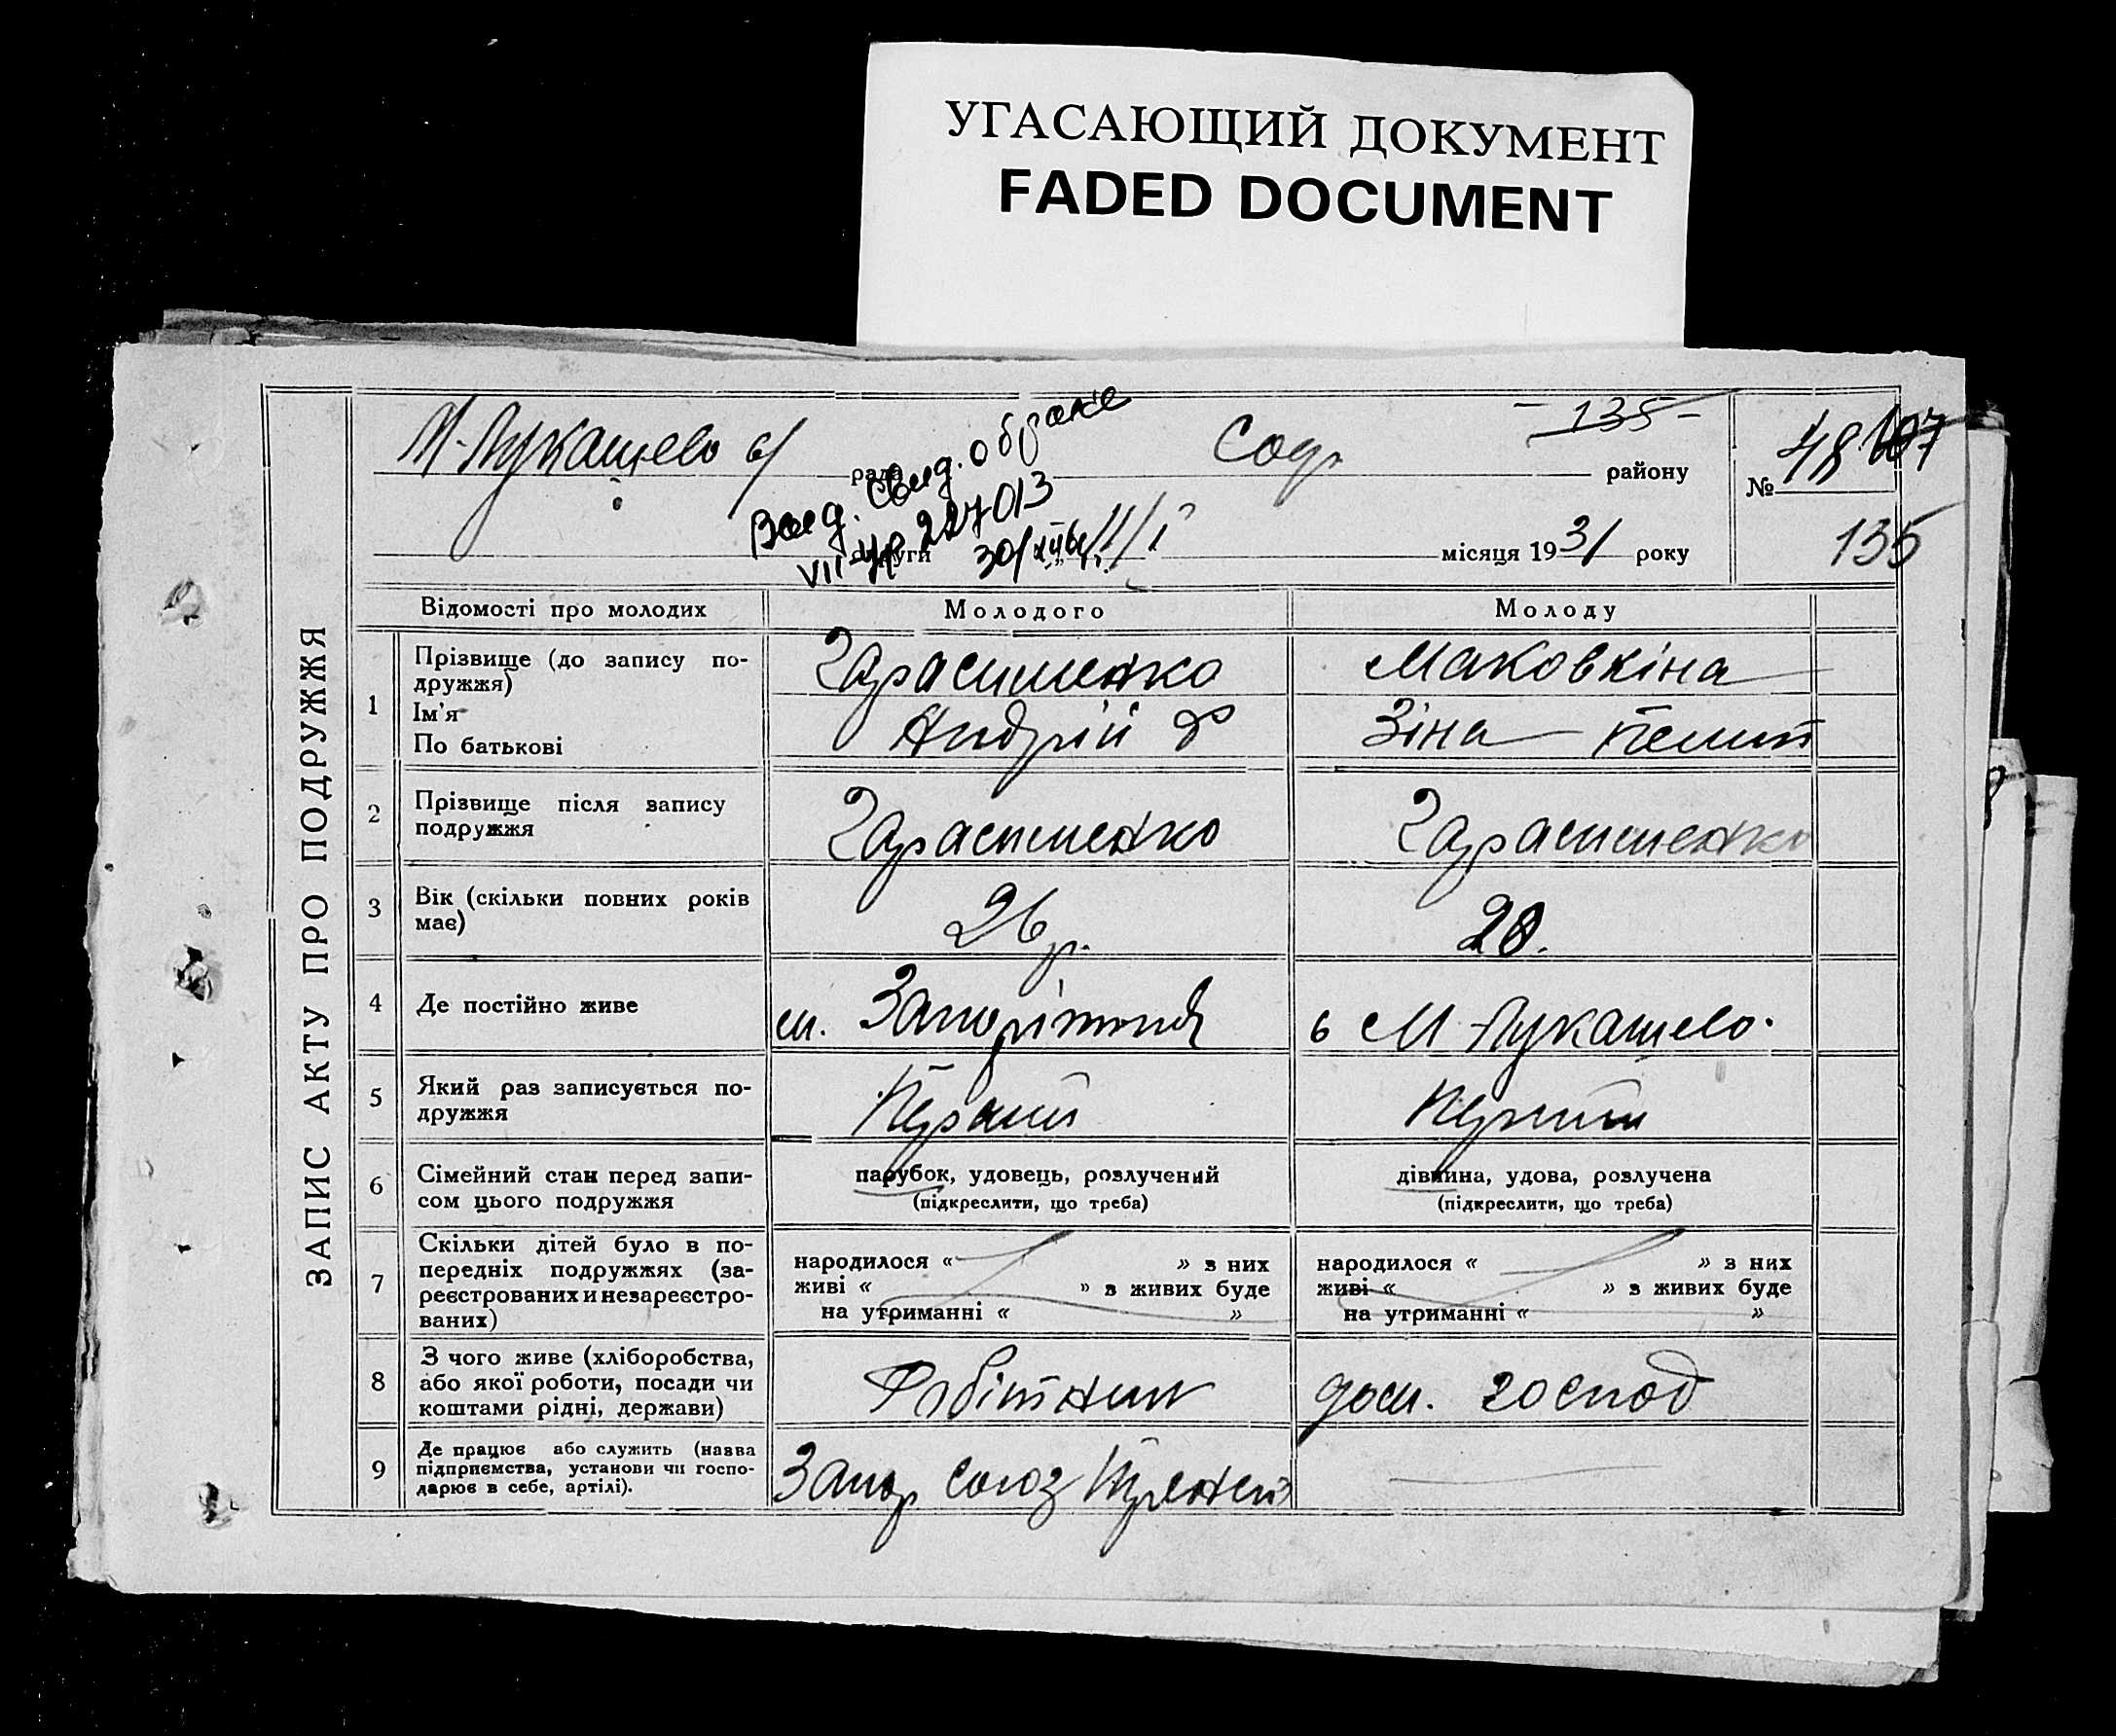 УГАСАЮЩИЙ ДОКУМЕНТ
FADED DOCUMENT
ЗАПИС АКТУ ПРО ПОДРУЖЖЯ
- 135 -
М-Лукашево с/ рада Соф району
№ 48 107
135
Выд. Свид. о браке
VII-УР 227013
30/XII 64
округи 11/I місяця 1931 року
Відомості про молодих Молодого Молоду
1 Прізвище (до запису подружжя) Гарасименко Маковкіна
Ім'я Андрій Зіна
По батькові
2 Прізвище після запису подружжя Гарасименко Гарасименко
3 Вік (скільки повних років має) 26 р. 20.
4 Де постійно живе м. Запоріжжя с М-Лукашево.
5 Який раз записується подружжя Перший Перший
6 Сімейний стан перед записом цього подружжя
парубок, удовець, розлучений
(підкреслити, що треба)
дівчина, удова, розлучена
(підкреслити, що треба)
7 Скільки дітей було в попередніх подружжях (зареєстрованих и незареєстрованих)
народилося « » з них
живі « » з живих буде
на утриманні « »
народилося « » з них
живі « » з живих буде
на утриманні « »
8 З чого живе (хліборобства, або якої роботи, посади чи коштами рідні, держави) Робітник дом. господ
9 Де працює або служить (назва підприємства, установи чи господарює в себе, артілі). Запор союз